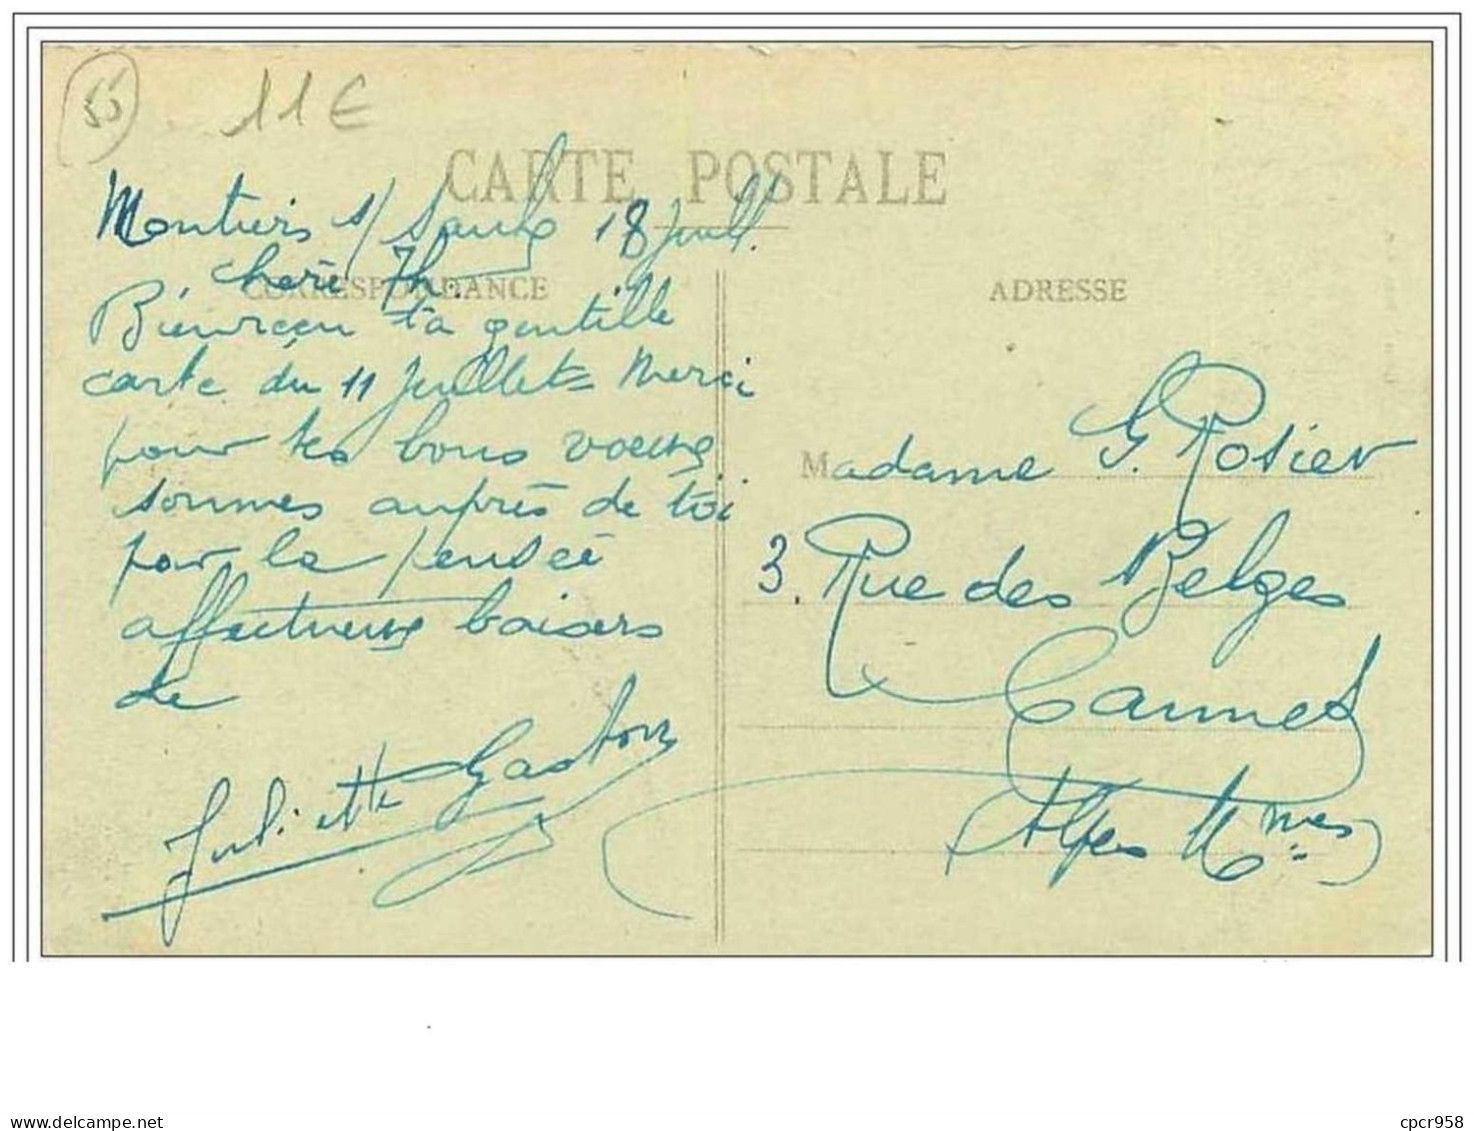 55
11€
CARTE POSTALE
Montiers s/ Saulx 18 Juill.
CORRESPONDANCE
chère Th.
Bien reçu ta gentille
carte du 11 Juillet = Merci
pour tes bons voeux
sommes auprès de toi
par la pensée
affectueux baisers
de
Juliette Gaston
ADRESSE
Madame G. Rosier
3. Rue des Belges
Cannes
Alpes Mmes
delcampe.net
cpcr958